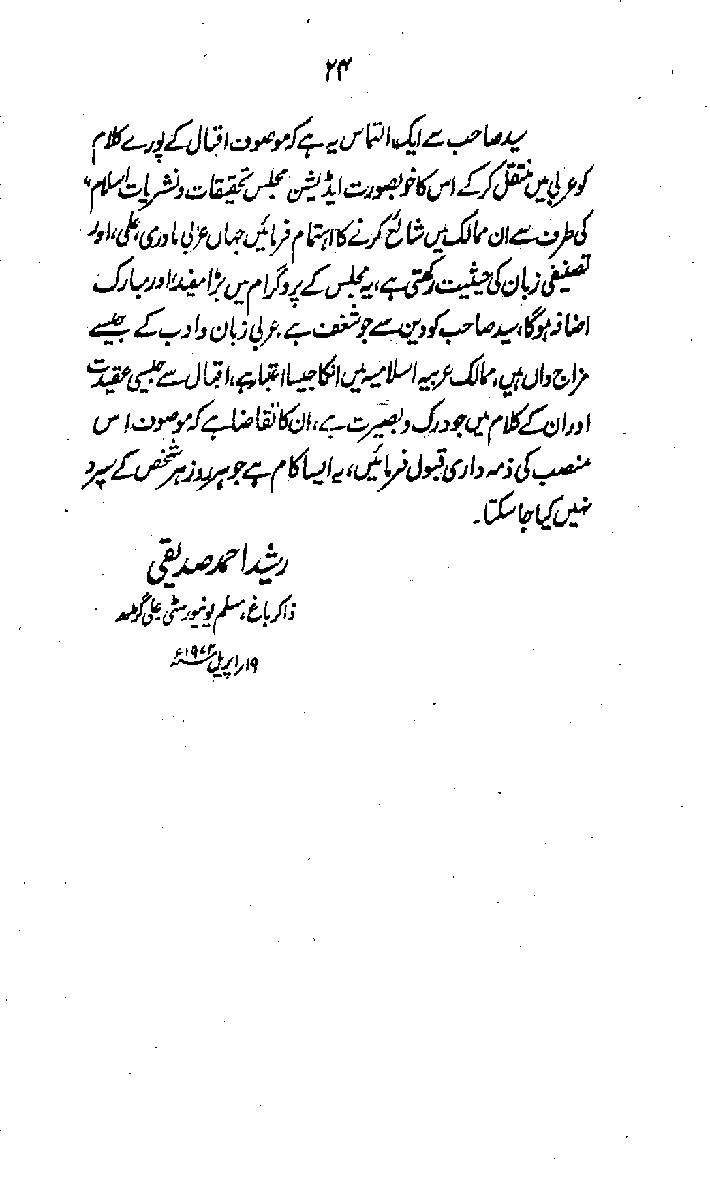 ۲۴
سید صاحب سے ایک التماس یہ ہے کہ موصوف اقبال کے پورے کلام
کو عربی میں منتقل کرکے اس کا خوبصورت ایڈیشن مجلس تحقیقات و نشریات اسلام"
کی طرف سے ان ممالک میں شائع کرنے کا اہتمام فرمائیں جہاں عربی مادری، علمی، اور
تصنیفی زبان کی حیثیت رکھتی ہے، یہ مجلس کے پروگرام میں بڑا مفید اور مبارک
اضافہ ہوگا، سید صاحب کو دین سے جو شغف ہے عربی زبان و ادب کے جیسے
مزاج داں ہیں، ممالک عربیہ اسلامیہ میں انکا جیسا اعتبار ہے، اقبال سے جیسی عقیدت
اور ان کے کلام میں جو درک و بصیرت ہے، ان کا تقاضا ہے کہ موصوف اس
منصب کی ذمہ داری قبول فرمائیں، یہ ایسا کام ہے جو ہر روز ہر شخص کے سپرد
نہیں کیا جا سکتا۔
رشید احمد صدیقی
ذاکر باغ، مسلم یونیورسٹی علی گڑھ
۱۹/ اپریل